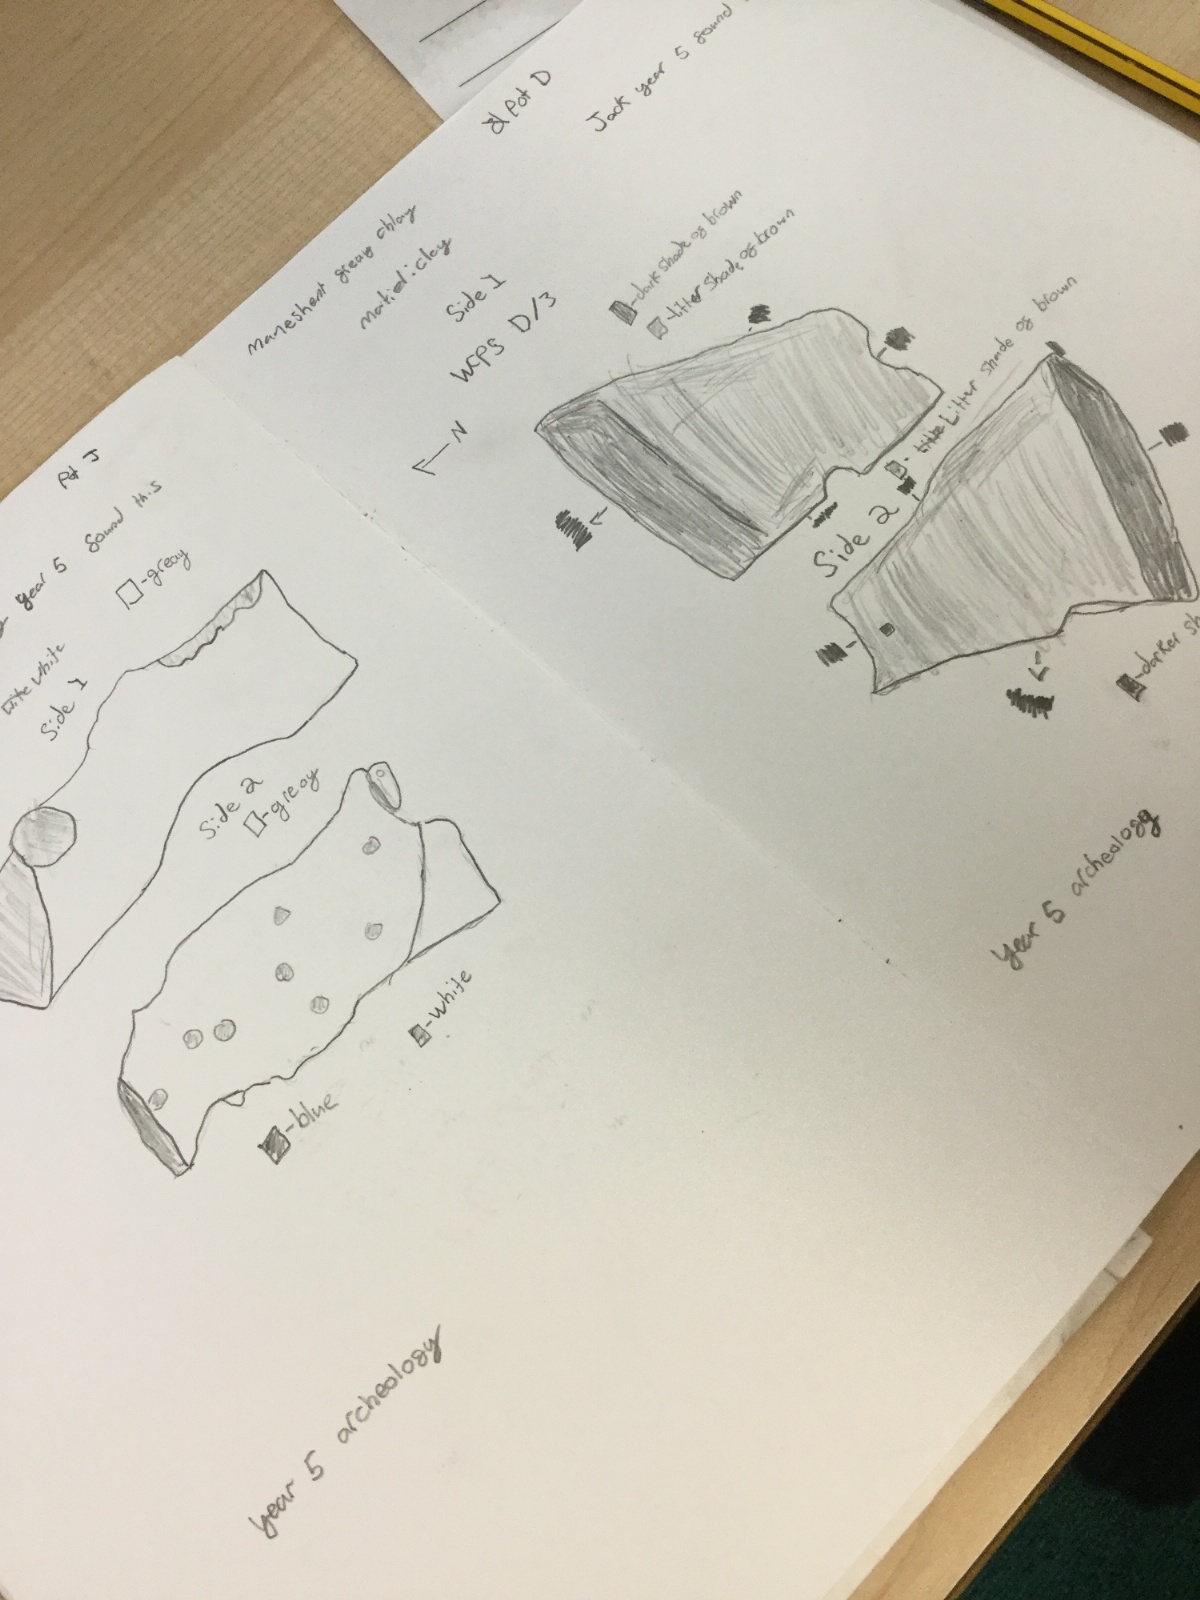 Pot J
year 5 found this
white
Side 1
-greay
Side 2
-greay
-white
-blue
year 5 archeology
Pot D
Jack year 5 found
greay
clay
Side 1
WCPS D/3
N
-dark shade of brown
-litter shade of brown
Side 2
Litter shade of brown
-darker sh
year 5 archeology